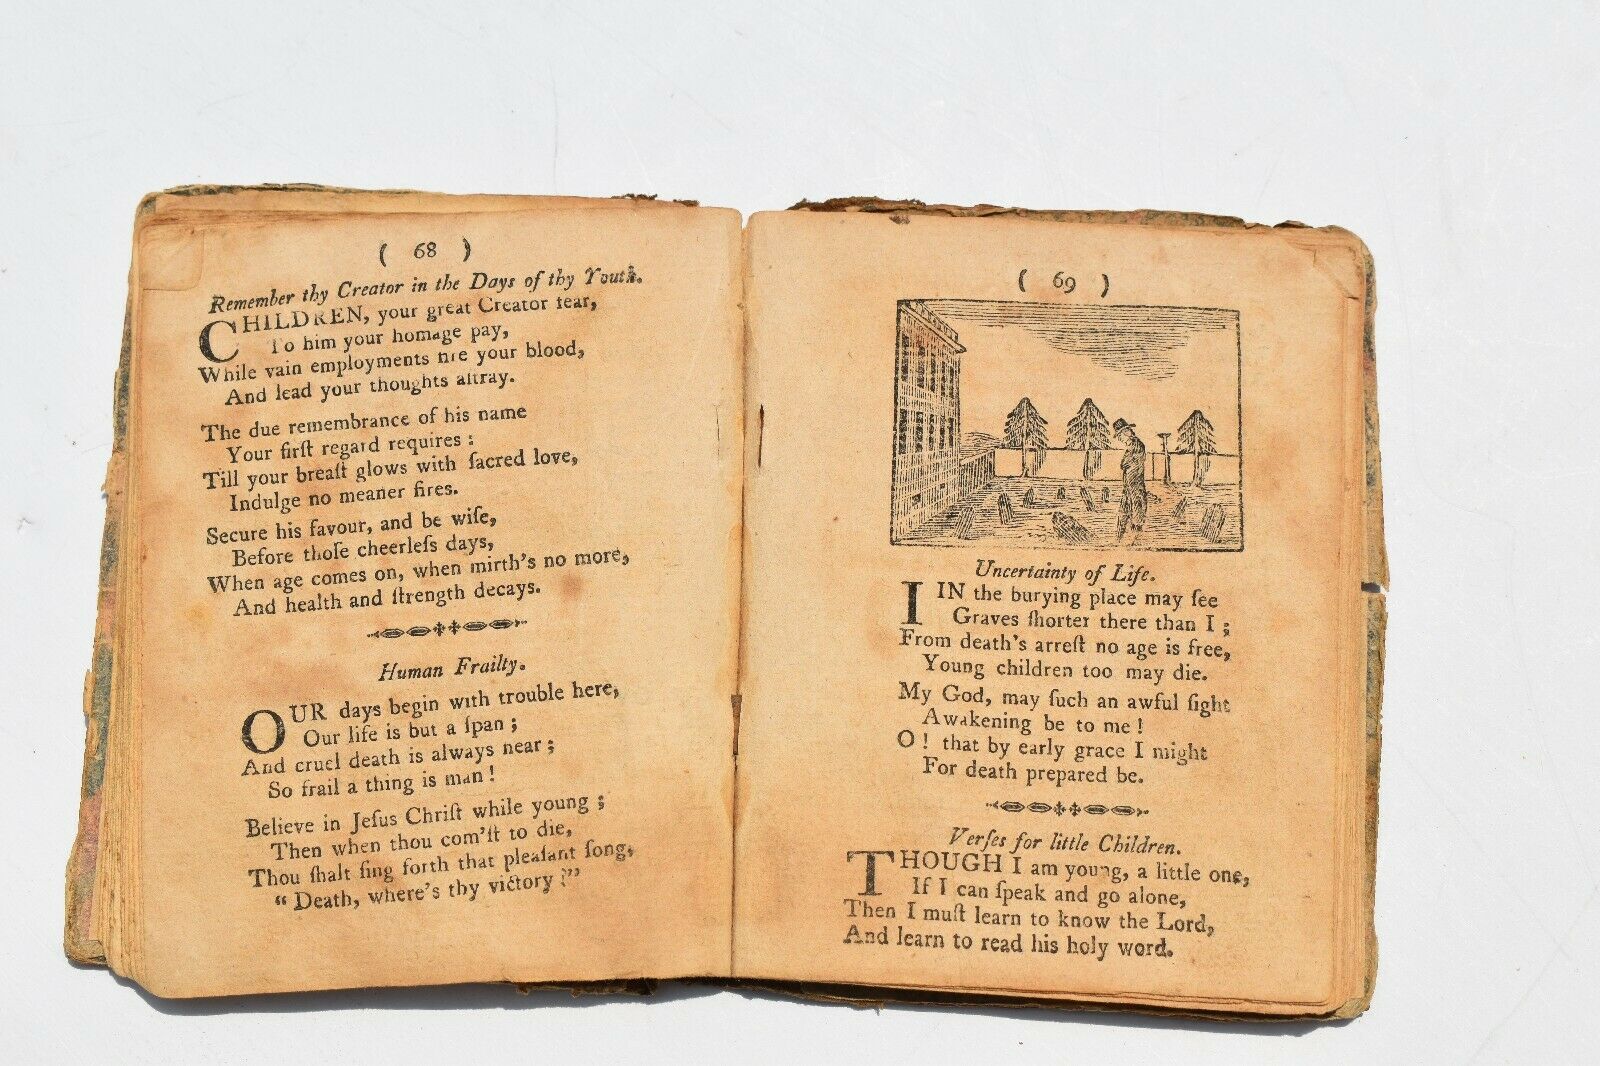 ( 68 )
Remember thy Creator in the Days of thy Youth.
CHILDREN, your great Creator fear,
To him your homage pay,
While vain employments fire your blood,
And lead your thoughts aſtray.
The due remembrance of his name
Your firſt regard requires :
Till your breaſt glows with ſacred love,
Indulge no meaner fires.
Secure his favour, and be wiſe,
Before thoſe cheerleſs days,
When age comes on, when mirth's no more,
And health and ſtrength decays.
Human Frailty.
OUR days begin with trouble here,
Our life is but a ſpan ;
And cruel death is always near ;
So frail a thing is man !
Believe in Jeſus Chriſt while young ;
Then when thou com'ſt to die,
Thou ſhalt ſing forth that pleaſant ſong,
“ Death, where's thy victory ?”
( 69 )
Uncertainty of Life.
I IN the burying place may ſee
Graves ſhorter there than I ;
From death's arreſt no age is free,
Young children too may die.
My God, may ſuch an awful ſight
Awakening be to me !
O ! that by early grace I might
For death prepared be.
Verſes for little Children.
THOUGH I am young, a little one,
If I can ſpeak and go alone,
Then I muſt learn to know the Lord,
And learn to read his holy word.